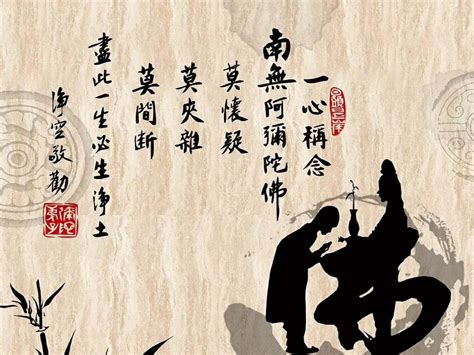 一心稱念
南無阿彌陀佛
莫懷疑
莫夾雜
莫間断
盡此一生必生淨土
淨空敬勸
佛